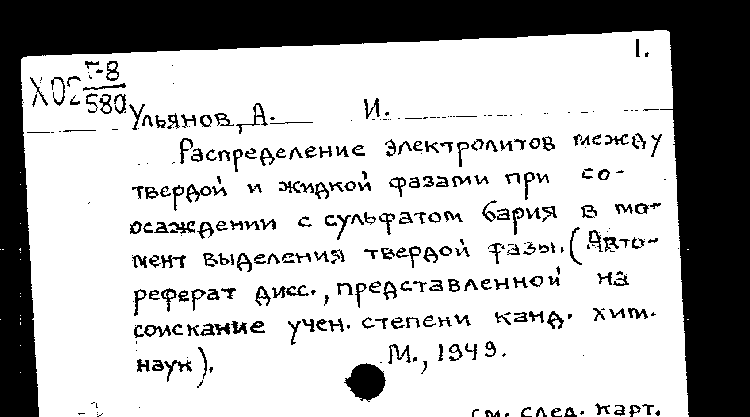 1.
Х02 Г-8
580
Ульянов, А. И.
Распределение электролитов между
твердой и жидкой фазами при со-
осаждении с сульфатом бария в мо-
мент выделения твердой фазы. (Авто-
реферат дисс., представленной на
соискание учен. степени канд. хим.
наук). М., 1949.
см. след. карт.